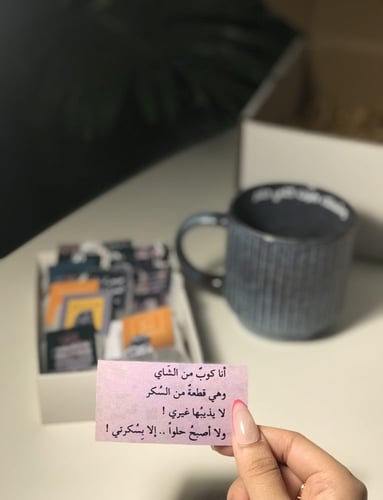 أنا كوبٌ من الشّاي
وهي قطعةٌ من السُكر
لا يذيبُها غيري !
ولا أصبحُ حلواً .. إلا بِسُكرتي !